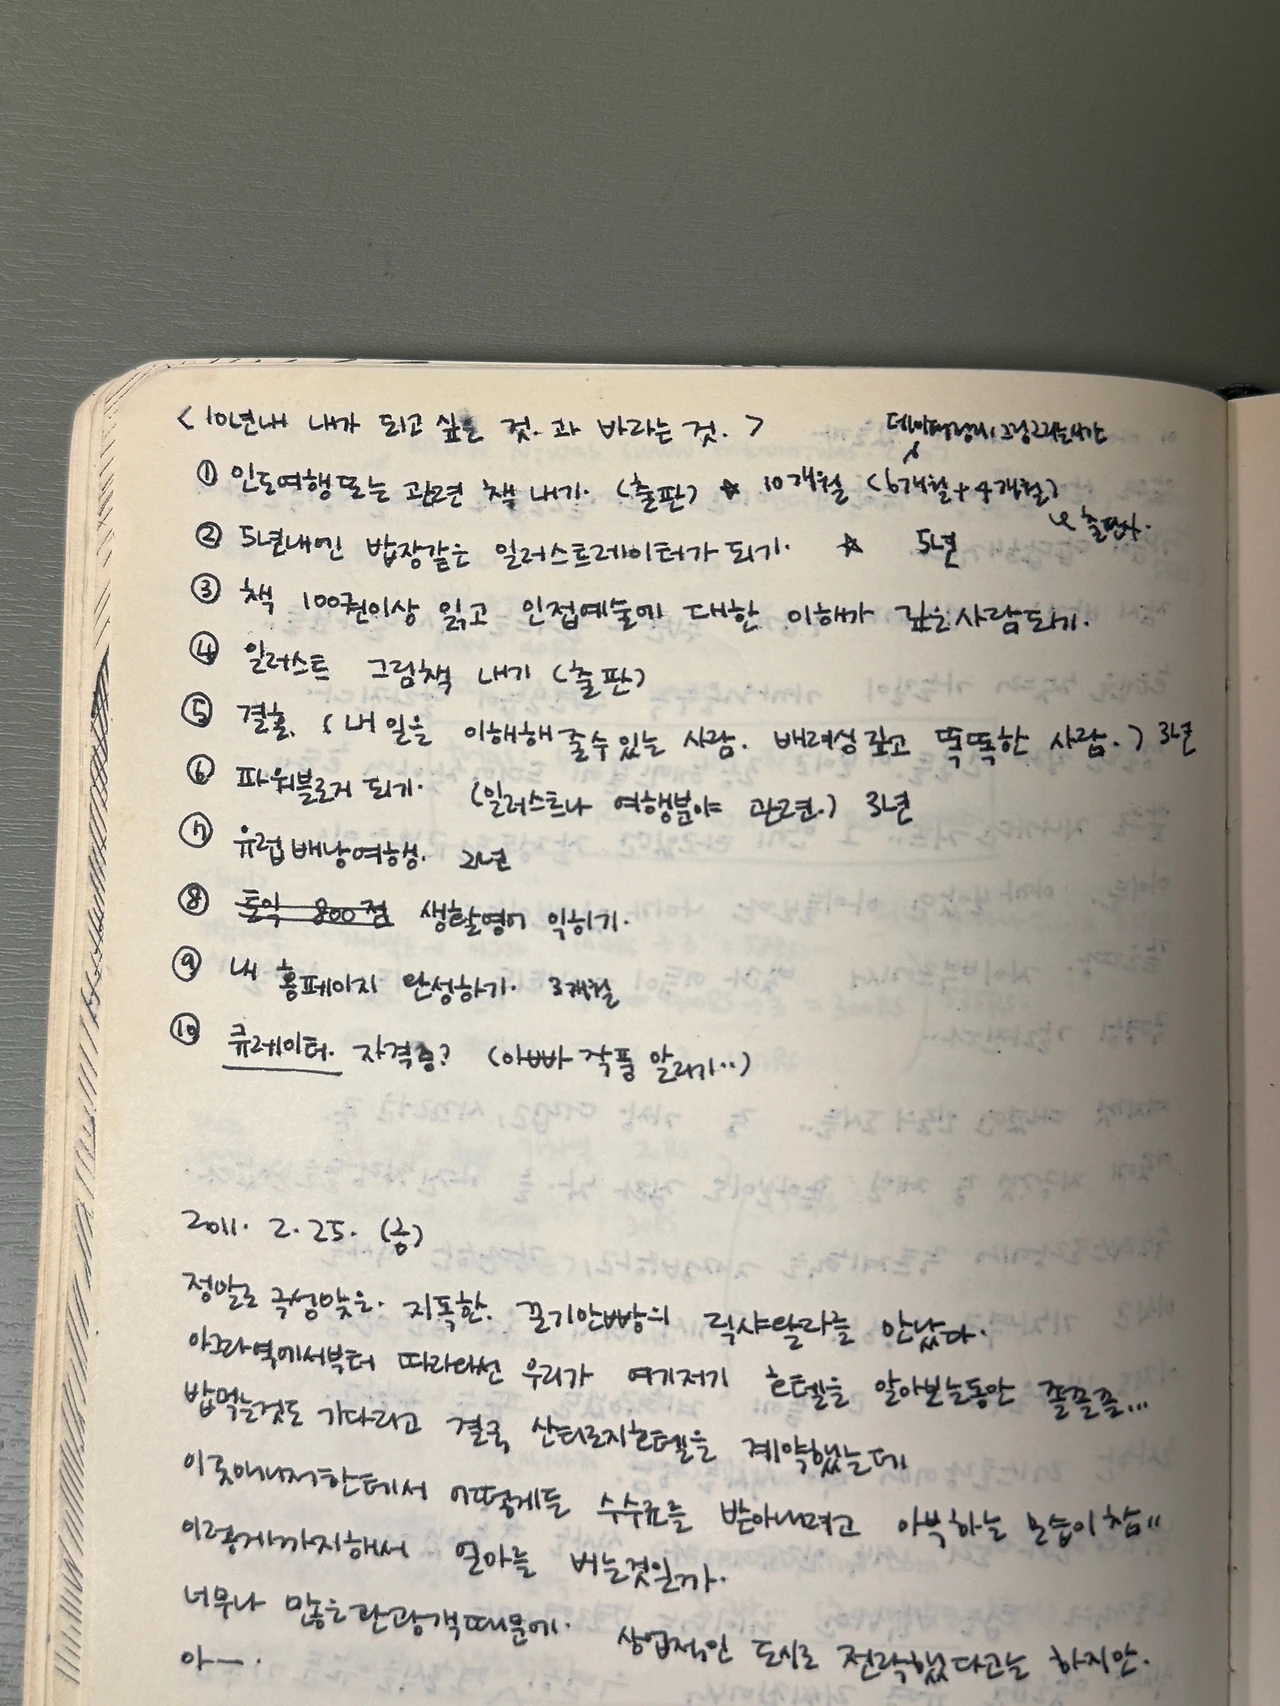 <10년내 내가 되고 싶은 것. 과 바라는 것.>
① 인도여행또는 관련 책 내기. (출판) ☆ 10개월 (6개월+4개월)
↳ 출판사.
② 5년내엔 밥장같은 일러스트레이터가 되기. ☆ 5년
③ 책 100권이상 읽고 인접예술에 대한 이해가 깊은사람되기.
④ 일러스트 그림책 내기 (출판)
⑤ 결혼. (내 일을 이해해 줄수있는 사람. 배려심깊고 똑똑한 사람.) 3년
⑥ 파워블로거 되기. (일러스트나 여행분야 관련.) 3년
⑦ 유럽배낭여행. 2년
⑧ 토익 800점 생활영어 익히기.
⑨ 내 홈페이지 완성하기. 3개월
⑩ 큐레이터. 자격증? (아빠 작품 알리기..)
2011. 2. 25. (금)
정말로 극성맞은. 지독한. 끈기만빵의 릭샤왈라를 만났다.
아그라역에서부터 따라와선 우리가 여기저기 호텔을 알아보는동안 졸졸졸...
밥먹는것도 기다리고 결국 산티로지호텔을 계약했는데
이곳매니저한테서 어떻게든 수수료를 받아내려고 아부하는 모습이 참..
이렇게까지해서 얼마를 버는것일까.
너무나 많은관광객때문에. 상업적인 도시로 전락했다고는 하지만.
아—.